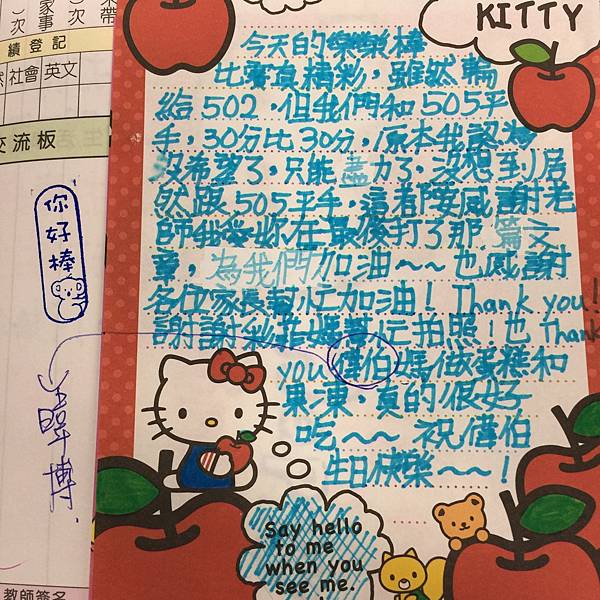 帶
次
家事
次
績登記
社會 英文
交流板
你好棒
暐博
教師簽名
KITTY
今天的樂樂棒
比賽真精彩,雖然輸
給502,但我們和505平
手,30分比30分,原本我認為
沒希望了,只能盡力了,沒想到居
然跟505平手,這都要感謝老
師我愛妳在最後打了那篇文
章,為我們加油~~也感謝
各位家長幫忙加油!Thank you!
謝謝 媽幫忙拍照!也Thank
you 偉伯媽做蛋糕和
果凍,真的很好
吃~~祝偉伯
生日快樂~~!
Say hello
to me
when you
see me.